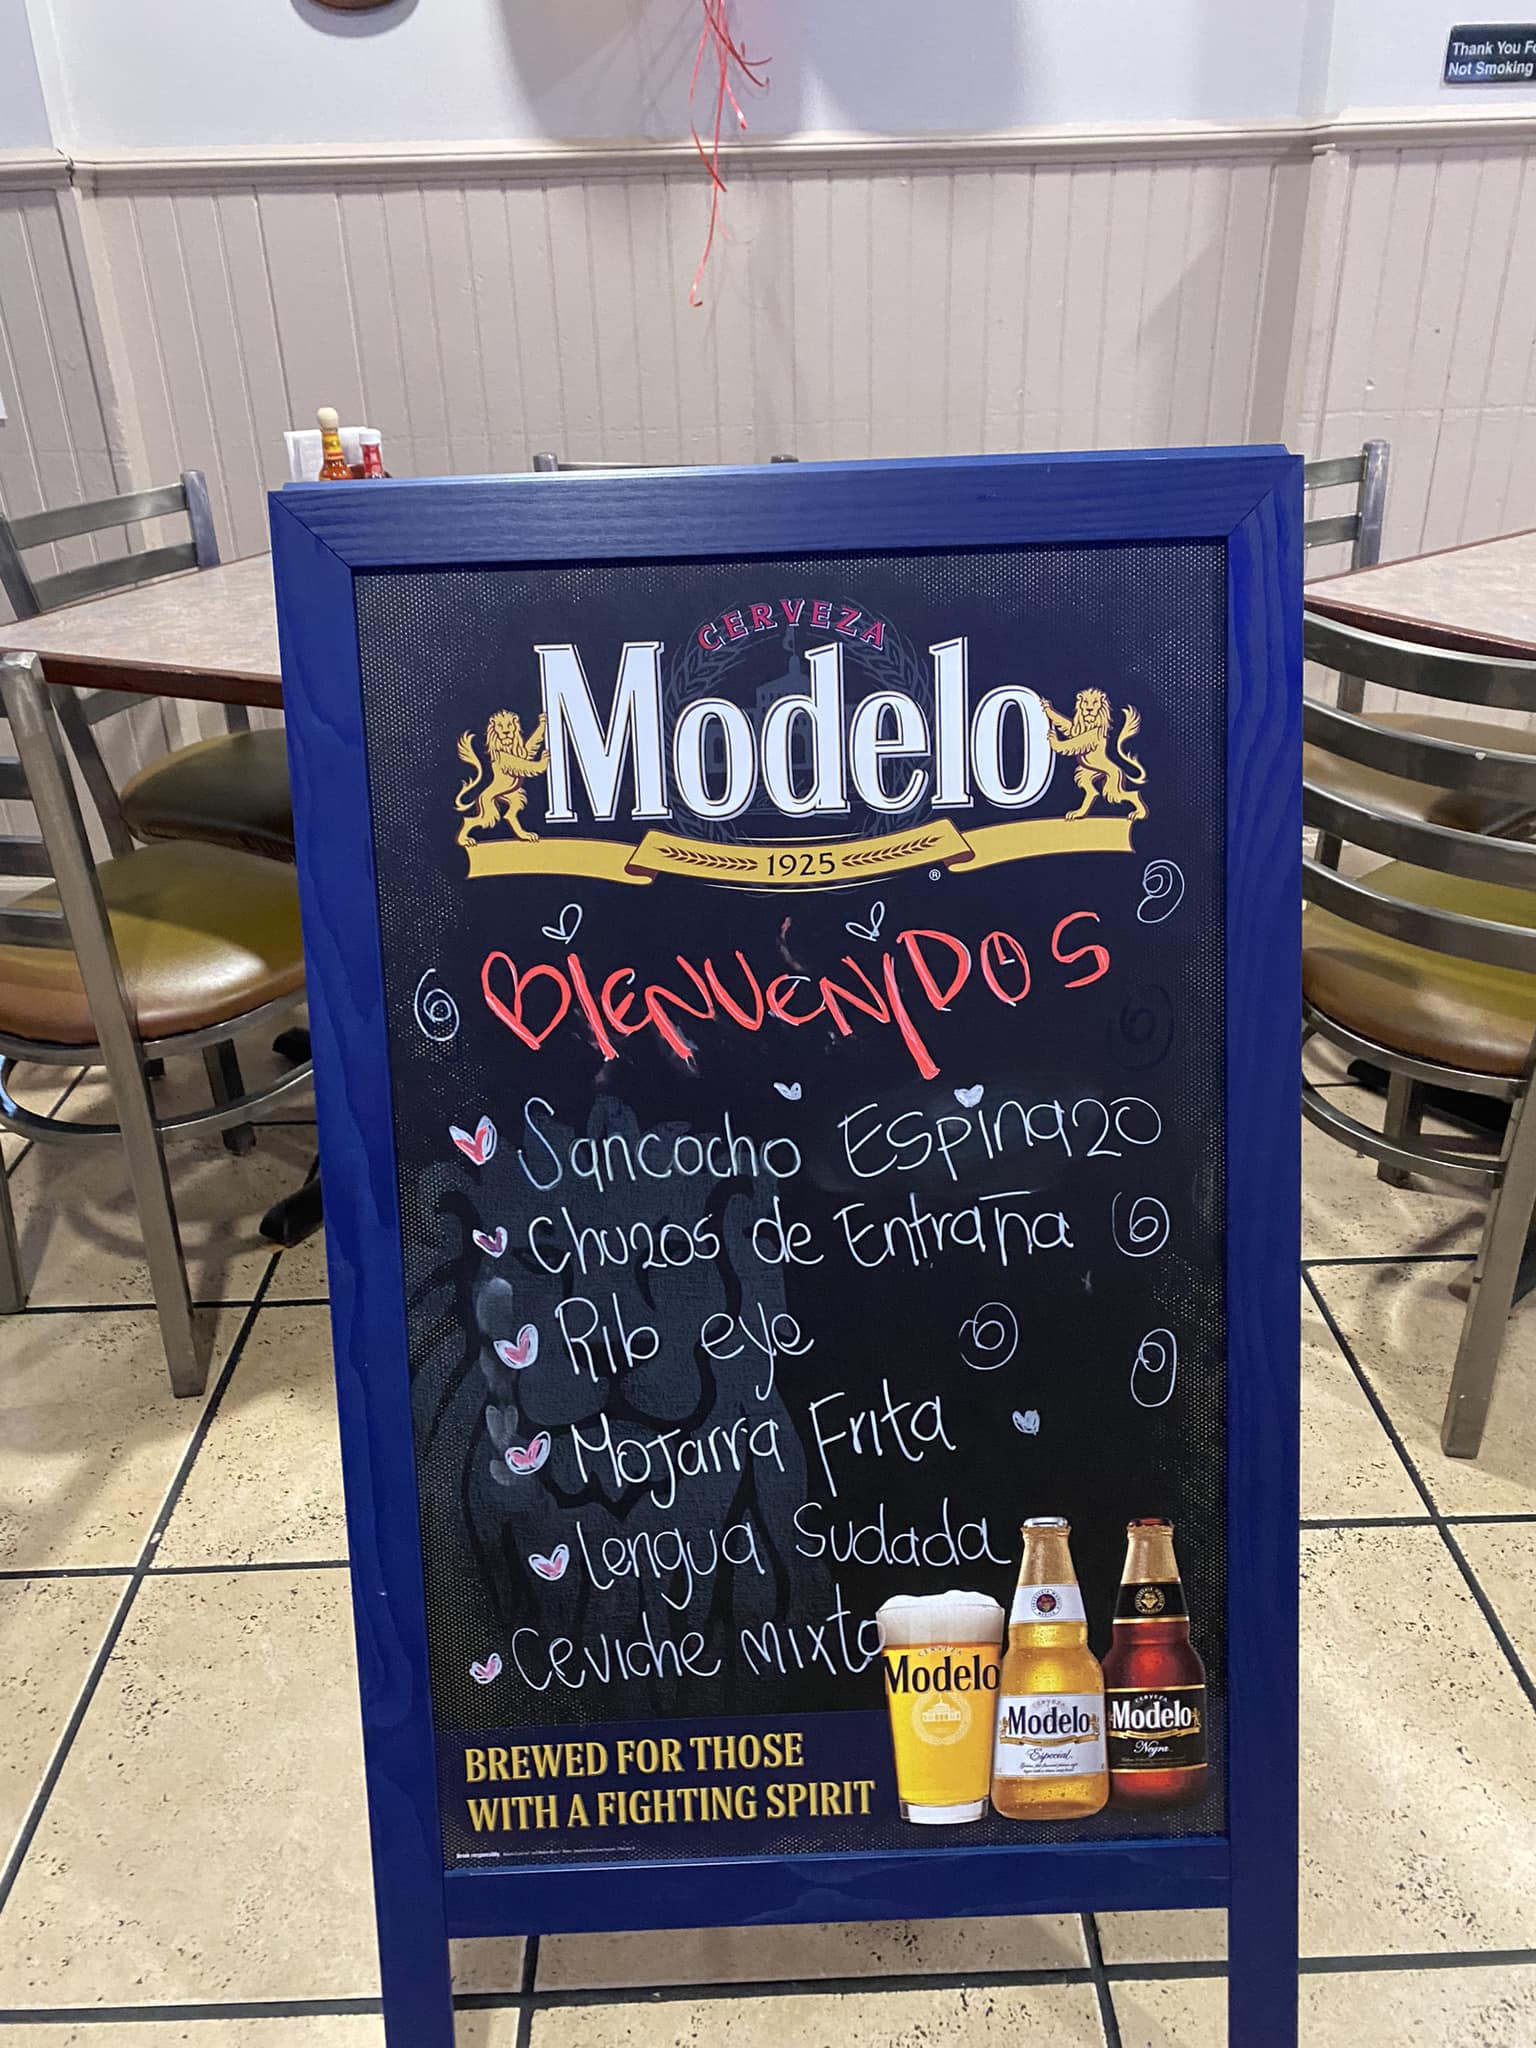 Thank You Fo
Not Smoking
CERVEZA
Modelo
1925
BIENVENIDOS
Sancocho Espinazo
Chuzos de Entraña
Rib eye
Mojarra Frita
lengua Sudada
Ceviche mixto
CERVEZA
Modelo
Modelo
Especial
CERVEZA
Modelo
Negra
BREWED FOR THOSE
WITH A FIGHTING SPIRIT
Drink responsibly.